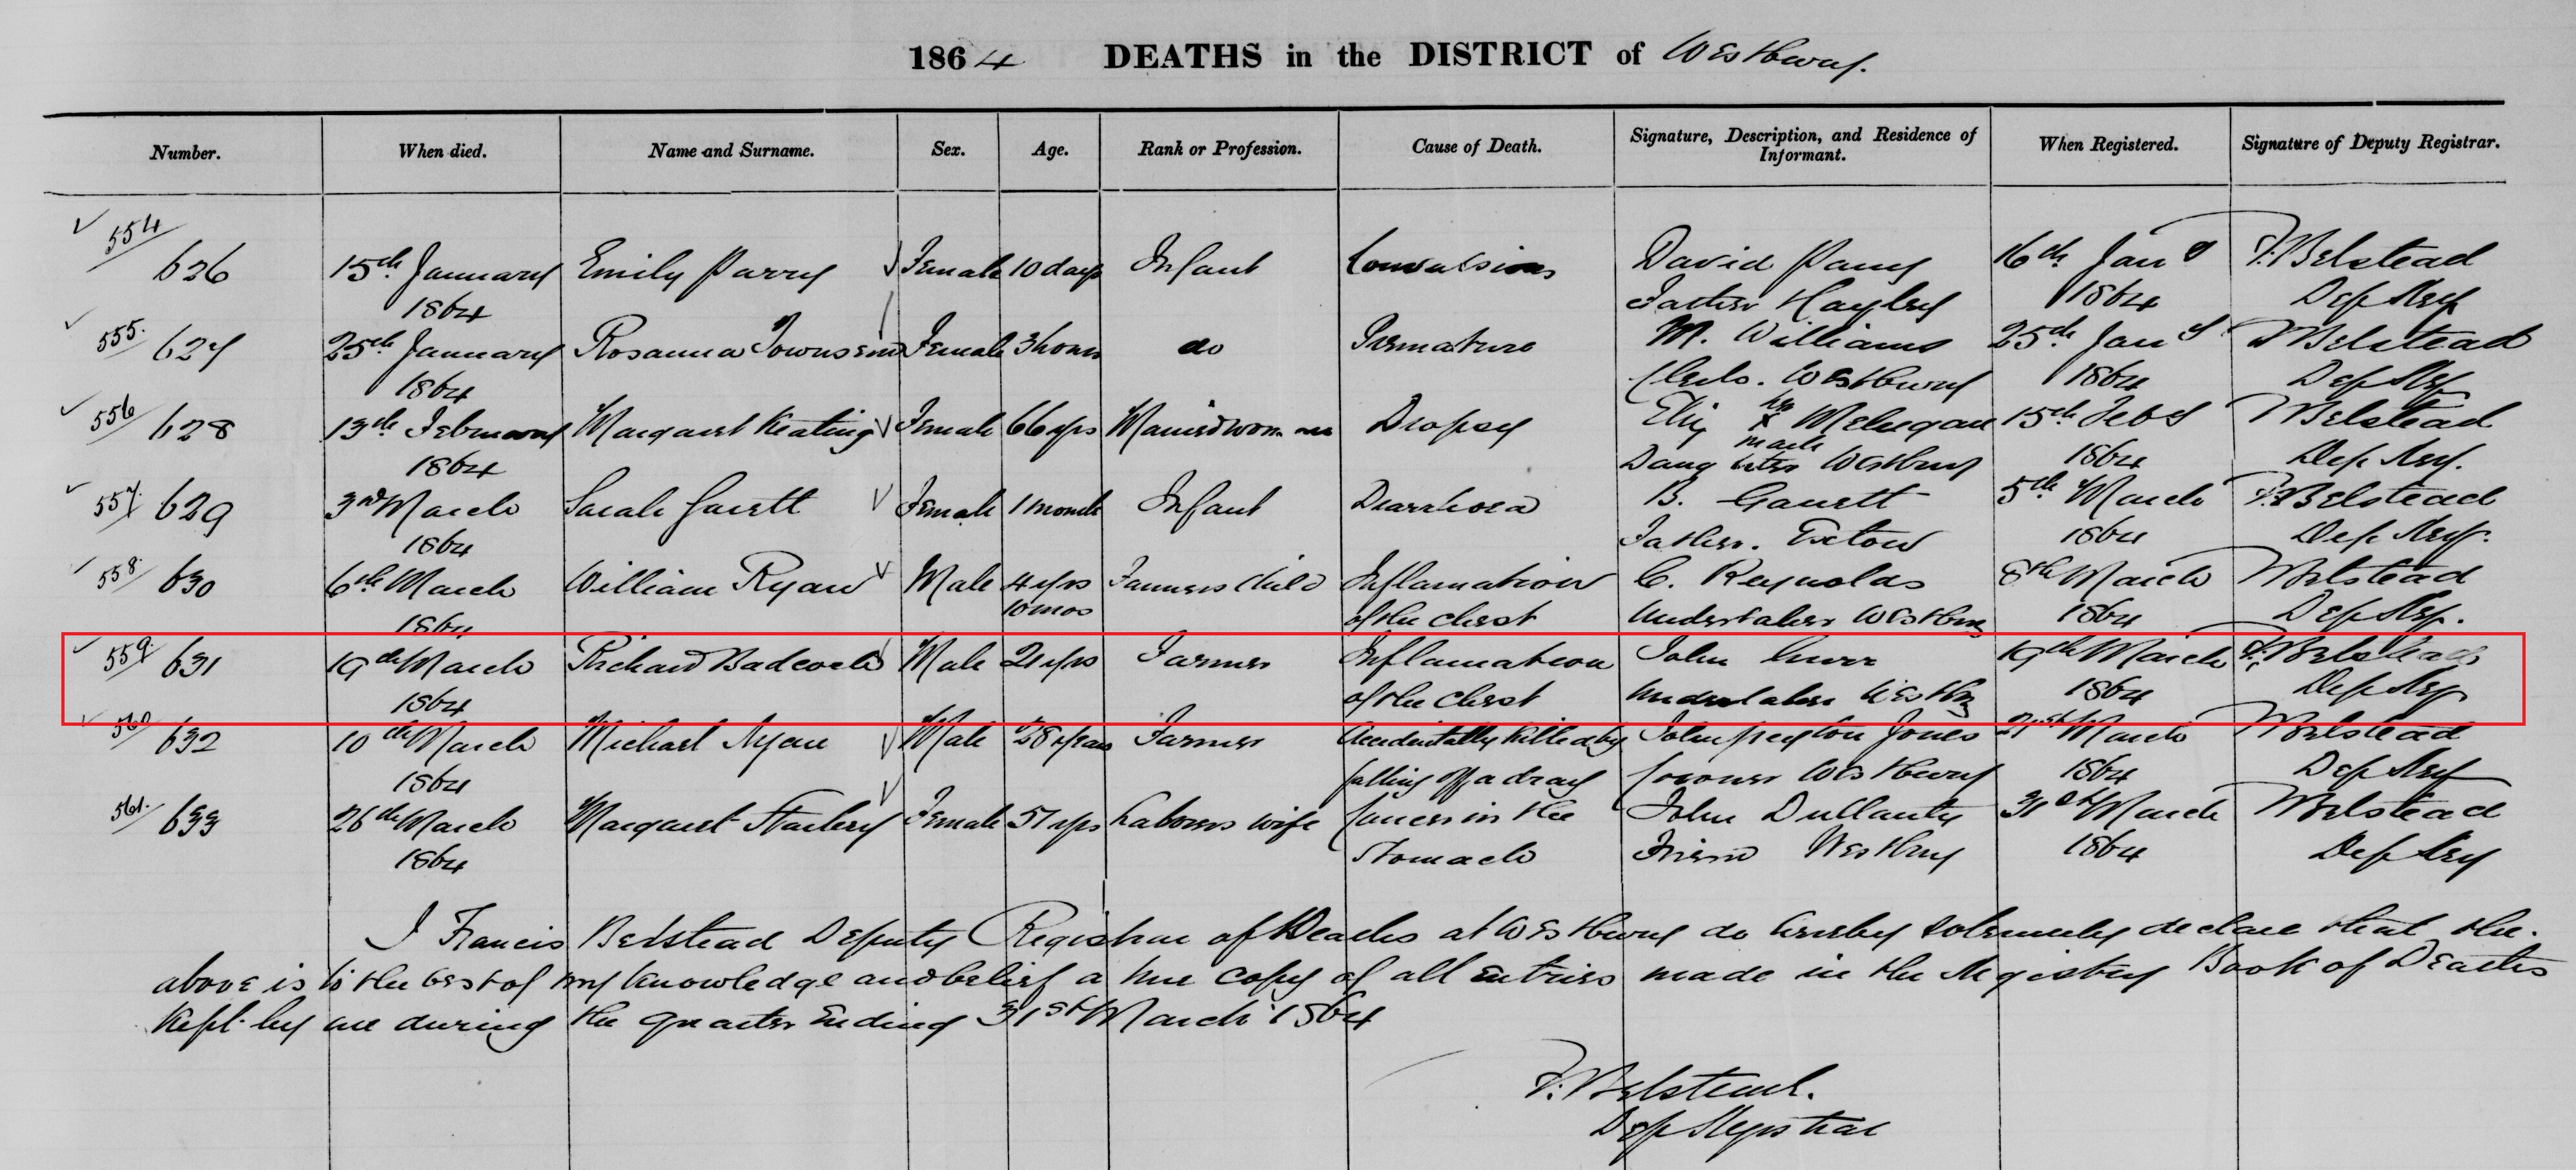 1864 DEATHS in the DISTRICT of Westbury.
Number. When died. Name and Surname. Sex. Age. Rank or Profession. Cause of Death. Signature, Description, and Residence of Informant. When Registered. Signature of Deputy Registrar.
554/ 626 15th January Emily Parry Female 10 days Infant Convulsions David Parry 16th Jany F. Belstead
1864 Father Hagley 1864 Dep Reg
555/ 627 25th January Rosanna Townsend Female 3 hours do Premature M. Williams 25th Jany F Belstead
1864 Westbury 1864 Dep Reg
556/ 628 13th February Margaret Keating Female 66 yrs Married woman Dropsy Eliz her x mark Melugan 15th Feby F Belstead
1864 Daughter Westbury 1864 Dep Reg.
557/ 629 3rd March Sarah Garett Female 1 month Infant Diarrhoea B. Garrett 5th March F. Belstead
1864 Father. Exton 1864 Dep Reg.
558/ 630 6th March William Ryan Male 4 yrs Farmers Child Inflamation C. Reynolds 8th March F Belstead
1864 10 mos of the chest Undertaker Westbury 1864 Dep Reg.
559/ 631 19th March Richard Badcock Male 21 yrs Farmer Inflamation John 19th March F. Belstead
1864 of the Chest Undertaker Westby 1864 Dep Reg
560/ 632 10th March Michael Ryan Male 28 years Farmer Accidentally killed by John Peyton Jones 21st March F Belstead
1864 falling off a dray Coroner Westbury 1864 Dep Reg
561. 633 26th March Margaret Female 51 yrs Labourers wife Cancer in the John Dullanty 31st March F Belstead
1864 Stomach Friend Westbury 1864 Dep Reg
I Francis Belstead Deputy Registrar of Deaths at Westbury do hereby solemnly declare that the.
above is to the best of my knowledge and belief a true copy of all entries made in the Registry Book of Deaths
kept by me during the quarter Ending 31st March 1864
F. Belstead.
Dep Registrar